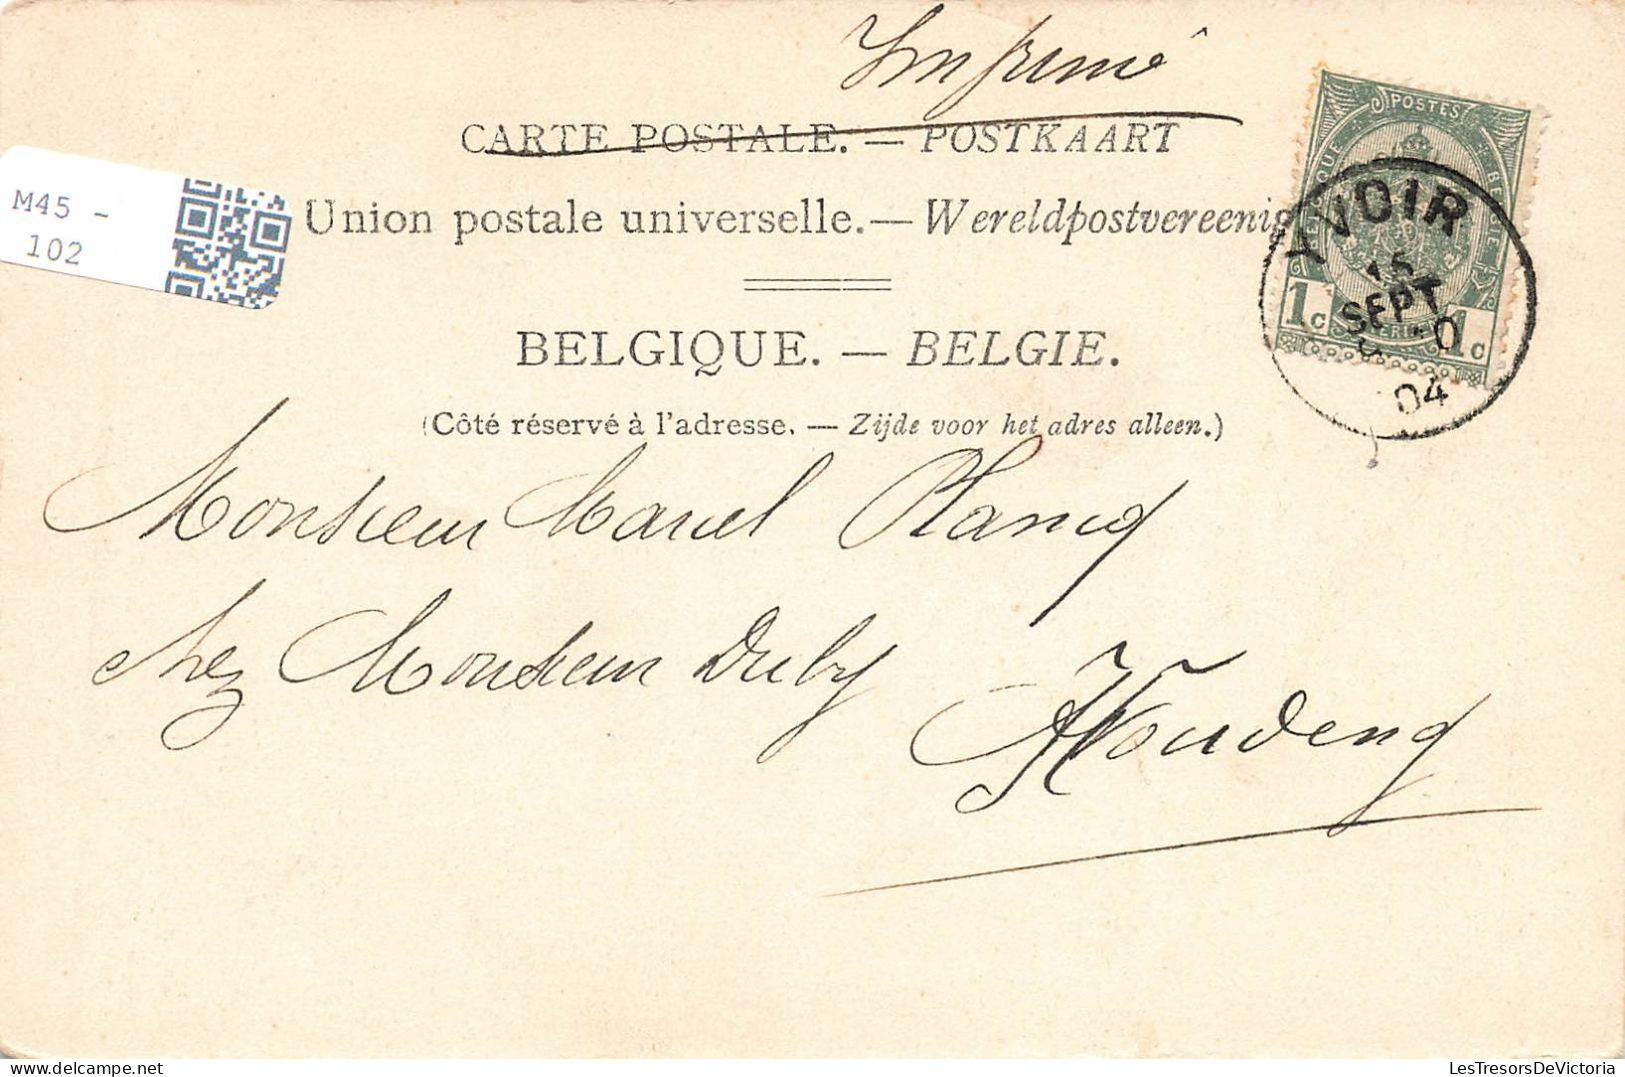 Imprimé
CARTE POSTALE. — POSTKAART
M45 -
102
Union postale universelle. — Wereldpostvereenig
BELGIQUE. — BELGIE.
(Côté réservé à l'adresse. — Zijde voor het adres alleen.)
POSTES
BELGIQUE
BELGIE
1c 1c
YVOIR
15
SEPT
04
Monsieur Marcel Plancq
chez Monsieur Duby
Houdeng
LesTresorsDeVictoria